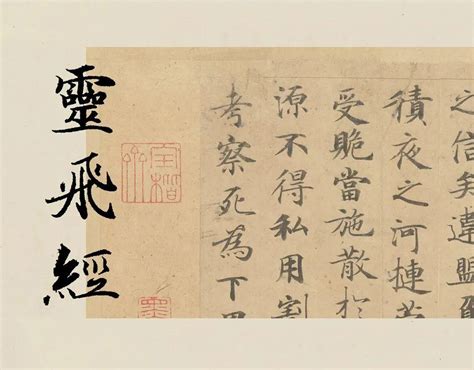 之信矣違盟
積夜之河摙
受貺當施散於
源不得私用割
考察死為下
靈飛經